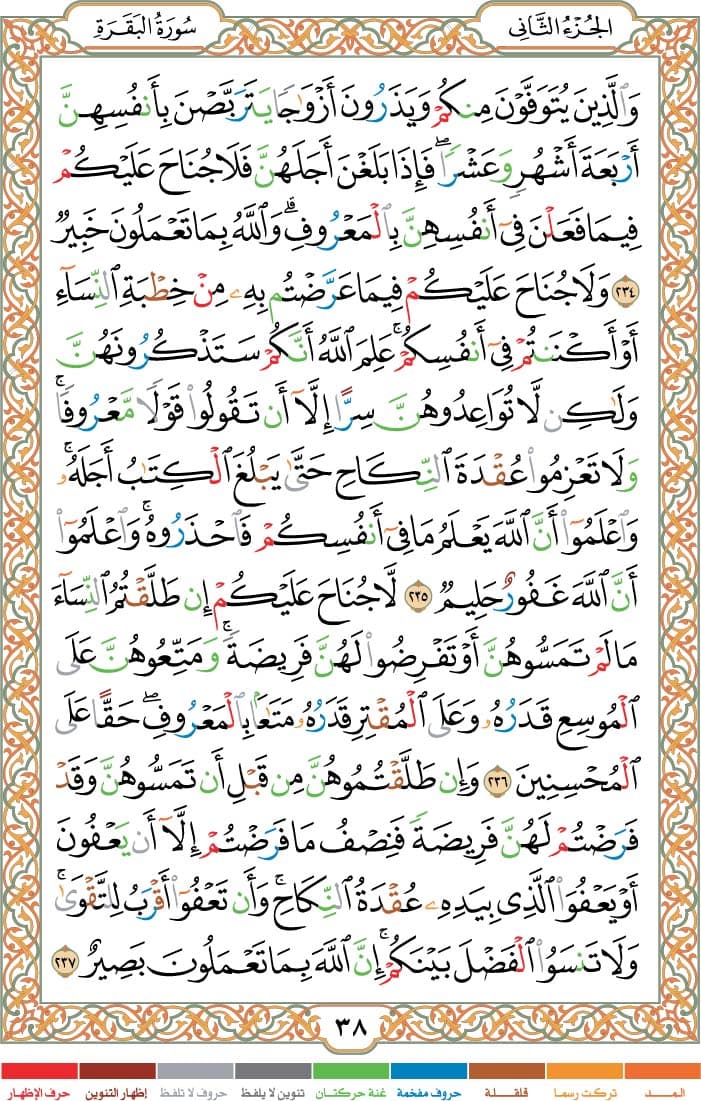 الجُزْءُ الثَّانِي
سُورَةُ البَقَرَةِ
وَٱلَّذِينَ يُتَوَفَّوْنَ مِنكُمْ وَيَذَرُونَ أَزْوَٰجًا يَتَرَبَّصْنَ بِأَنفُسِهِنَّ
أَرْبَعَةَ أَشْهُرٍ وَعَشْرًا ۖ فَإِذَا بَلَغْنَ أَجَلَهُنَّ فَلَا جُنَاحَ عَلَيْكُمْ
فِيمَا فَعَلْنَ فِىٓ أَنفُسِهِنَّ بِٱلْمَعْرُوفِ ۗ وَٱللَّهُ بِمَا تَعْمَلُونَ خَبِيرٌ
٢٣٤ وَلَا جُنَاحَ عَلَيْكُمْ فِيمَا عَرَّضْتُم بِهِۦ مِنْ خِطْبَةِ ٱلنِّسَآءِ
أَوْ أَكْنَنتُمْ فِىٓ أَنفُسِكُمْ ۚ عَلِمَ ٱللَّهُ أَنَّكُمْ سَتَذْكُرُونَهُنَّ
وَلَـٰكِن لَّا تُوَاعِدُوهُنَّ سِرًّا إِلَّآ أَن تَقُولُوا۟ قَوْلًا مَّعْرُوفًا ۚ
وَلَا تَعْزِمُوا۟ عُقْدَةَ ٱلنِّكَاحِ حَتَّىٰ يَبْلُغَ ٱلْكِتَـٰبُ أَجَلَهُۥ ۚ
وَٱعْلَمُوٓا۟ أَنَّ ٱللَّهَ يَعْلَمُ مَا فِىٓ أَنفُسِكُمْ فَٱحْذَرُوهُ ۚ وَٱعْلَمُوٓا۟
أَنَّ ٱللَّهَ غَفُورٌ حَلِيمٌ ٢٣٥ لَّا جُنَاحَ عَلَيْكُمْ إِن طَلَّقْتُمُ ٱلنِّسَآءَ
مَا لَمْ تَمَسُّوهُنَّ أَوْ تَفْرِضُوا۟ لَهُنَّ فَرِيضَةً ۚ وَمَتِّعُوهُنَّ عَلَى
ٱلْمُوسِعِ قَدَرُهُۥ وَعَلَى ٱلْمُقْتِرِ قَدَرُهُۥ مَتَـٰعًۢا بِٱلْمَعْرُوفِ ۖ حَقًّا عَلَى
ٱلْمُحْسِنِينَ ٢٣٦ وَإِن طَلَّقْتُمُوهُنَّ مِن قَبْلِ أَن تَمَسُّوهُنَّ وَقَدْ
فَرَضْتُمْ لَهُنَّ فَرِيضَةً فَنِصْفُ مَا فَرَضْتُمْ إِلَّآ أَن يَعْفُونَ
أَوْ يَعْفُوَا۟ ٱلَّذِى بِيَدِهِۦ عُقْدَةُ ٱلنِّكَاحِ ۚ وَأَن تَعْفُوٓا۟ أَقْرَبُ لِلتَّقْوَىٰ ۚ
وَلَا تَنسَوُا۟ ٱلْفَضْلَ بَيْنَكُمْ ۚ إِنَّ ٱللَّهَ بِمَا تَعْمَلُونَ بَصِيرٌ ٢٣٧
٣٨
المـــد تركت رسما قلقـــلة حروف مفخمة غنة حركتـان تنوين لا يلفظ حروف لا تلفظ إظهار التنوين حرف الإظهار